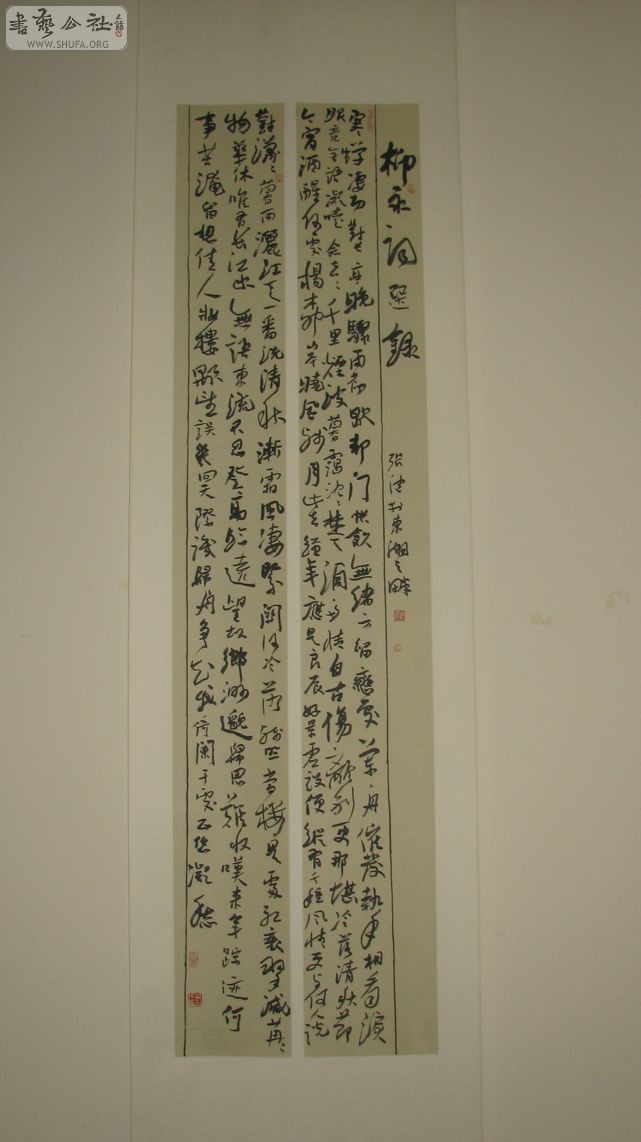 書藝公社
WWW.SHUFA.ORG
柳永詞選錄
張 於東湖之畔
寒蟬淒切對長亭晚驟雨初歇都門帳飲無緒方留戀處蘭舟催發執手相看淚
眼竟無語凝噎念去去千里煙波暮靄沈沈楚天闊多情自古傷離別更那堪冷落清秋節
今宵酒醒何處楊柳岸曉風殘月此去經年應是良辰好景虛設便縱有千種風情更與何人說
對瀟瀟暮雨灑江天一番洗清秋漸霜風淒緊關河冷落殘照當樓是處紅衰翠減苒苒
物華休唯有長江水無語東流不忍登高臨遠望故鄉渺邈歸思難收嘆來年踪迹何
事苦淹留想佳人妝樓顒望誤幾回天際識歸舟爭知我倚闌干處正恁凝愁